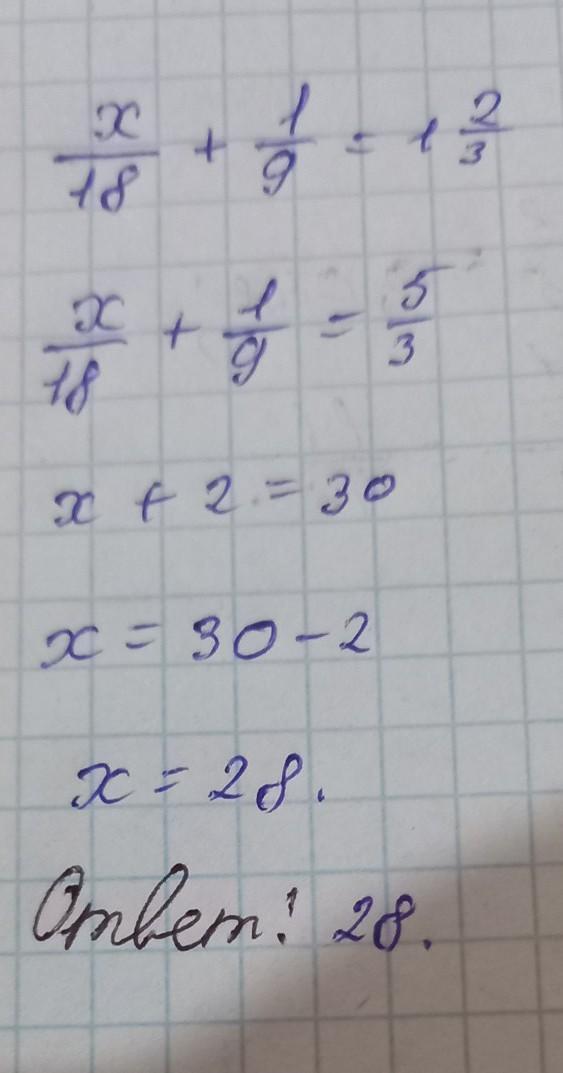 x/18 + 1/9 = 1 2/3
x/18 + 1/9 = 5/3
x + 2 = 30
x = 30 - 2
x = 28.
Ответ: 28.